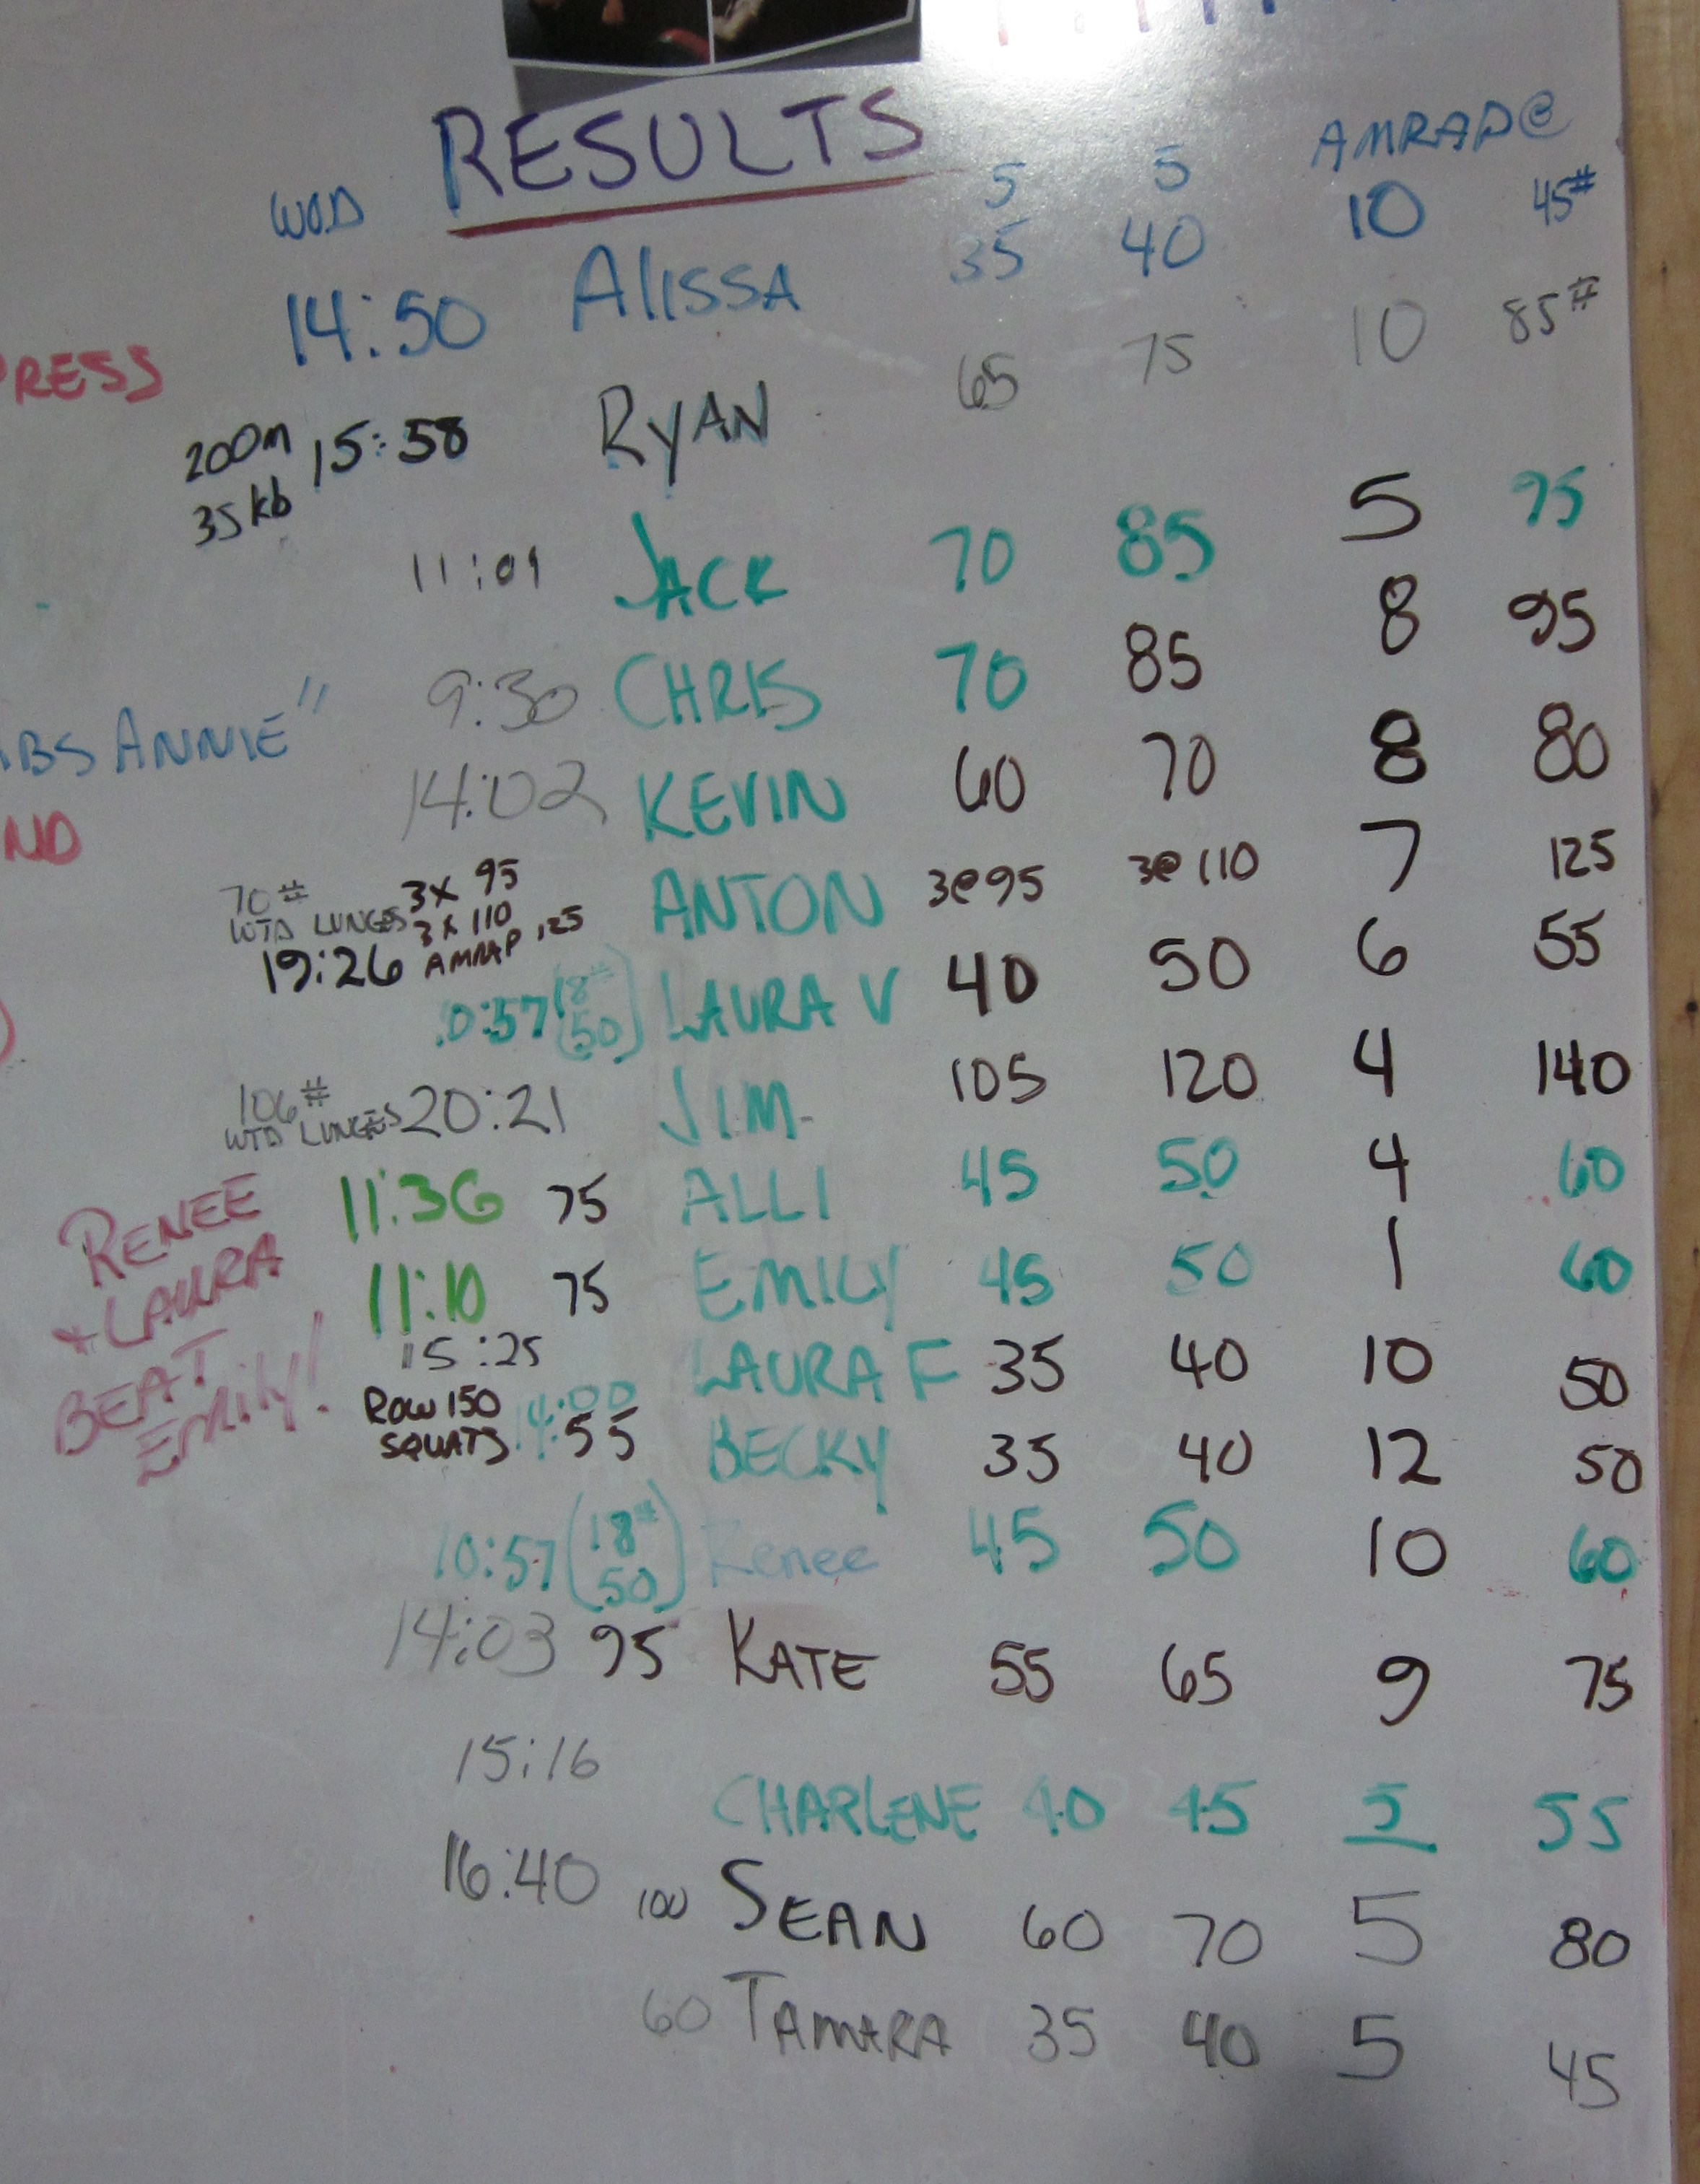 RESULTS
WOD 5 5 AMRAP@
14:50 ALISSA 35 40 10 45#
PRESS
200m 15:58 RYAN 65 75 10 85#
35kb
11:09 JACK 70 85 5 95
9:30 CHRIS 70 85 8 95
ABS ANNIE"
14:02 KEVIN 60 70 8 80
ND
70# 3x 95 ANTON 3@95 3@110 7 125
WTD LUNGES 3x 110
19:26 AMRAP 125
0:57 (8# 50) LAURA V 40 50 6 55
106# WTD LUNGES 20:21 JIM 105 120 4 140
11:36 75 ALLI 45 50 4 60
11:10 75 EMILY 45 50 1 60
RENEE
+ LAURA
BEAT
EMILY!
15:25 LAURA F 35 40 10 50
ROW 150 14:00
SQUATS 55 BECKY 35 40 12 50
10:57 (18# 50) Renee 45 50 10 60
14:03 95 KATE 55 65 9 75
15:16 CHARLENE 40 45 5 55
16:40 100 SEAN 60 70 5 80
60 TAMARA 35 40 5 45